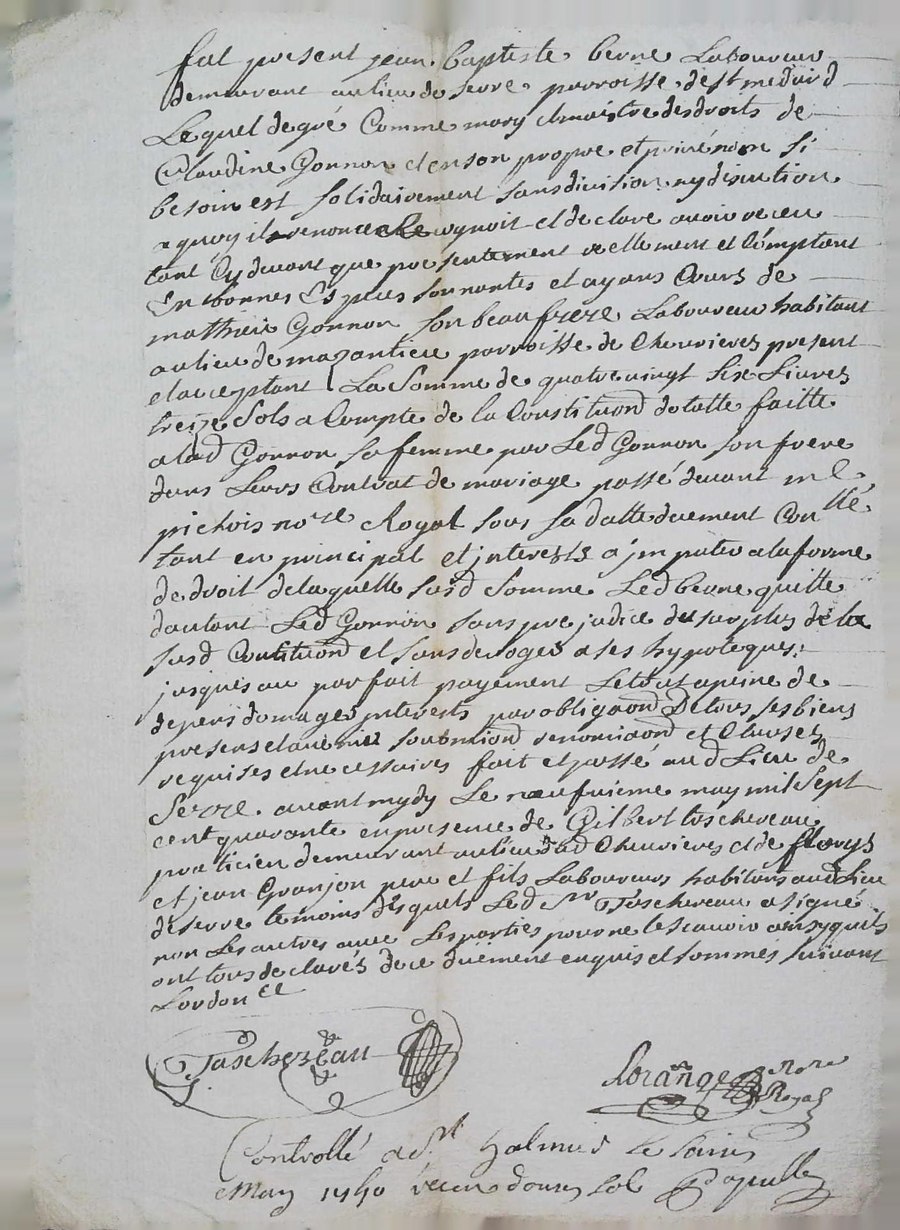 fut present jean Baptiste berne Laboureur
demeurant au lieu de serre parroisse de st medard
Lequel de gré Comme mary et maistre des droits de
Claudine Gonnon et en son propre et privé nom si
besoin est solidairement sans division ny discution
a quoy il renonce Recognoit et declare avoir receu
tant Cy devant que presentement reellement et Comptant
En bonnes Espèces sonnantes et ayans Cours de
mathieu Gonnon son beau frere Laboureur habitant
au lieu de mazantieu parroisse de Chevrieres present
et acceptant La Somme de quatre vingt six Livres
treize sols a Compte de la Constituon dotalle faitte
a lad Gonnon sa femme par Led Gonnon son frere
dans Leurs Contrat de mariage passé devant me
pichois nore Royal sous sa datte duement Conllé
tant en principal et interests a jmputer a la forme
de droit de laquelle susd Somme Led berne quitte
dautant Led Gonnon sans prejudice du surplus de la
susd Constituond et sans deroger a ses hypoteques
jusques au parfait payement Le tout a peine de
depens domages interests par obligaond De tous ses biens
presens et avenir soubmiond renonciaond et Clauses
requises et necessaires fait et passé aud Lieu de
Serre avant mydy Le neufvieme may mil sept
cent quarante en presence de Gilbert taschereau
praticien demeurant au lieu dud Chevrieres et de flory
et jean Granjon pere et fils Laboureurs habitans aud Lieu
de serre temoins desquels Led Sr Taschereau a signé
non Les autres avec Les parties pour ne le scavoir ainsy quils
ont tous declarés de ce duement enquis et sommés suivant
Lordonce
Taschereau
Lorange nore
Royal
Controllé a St Galmier le
May 1740 receu douze sols